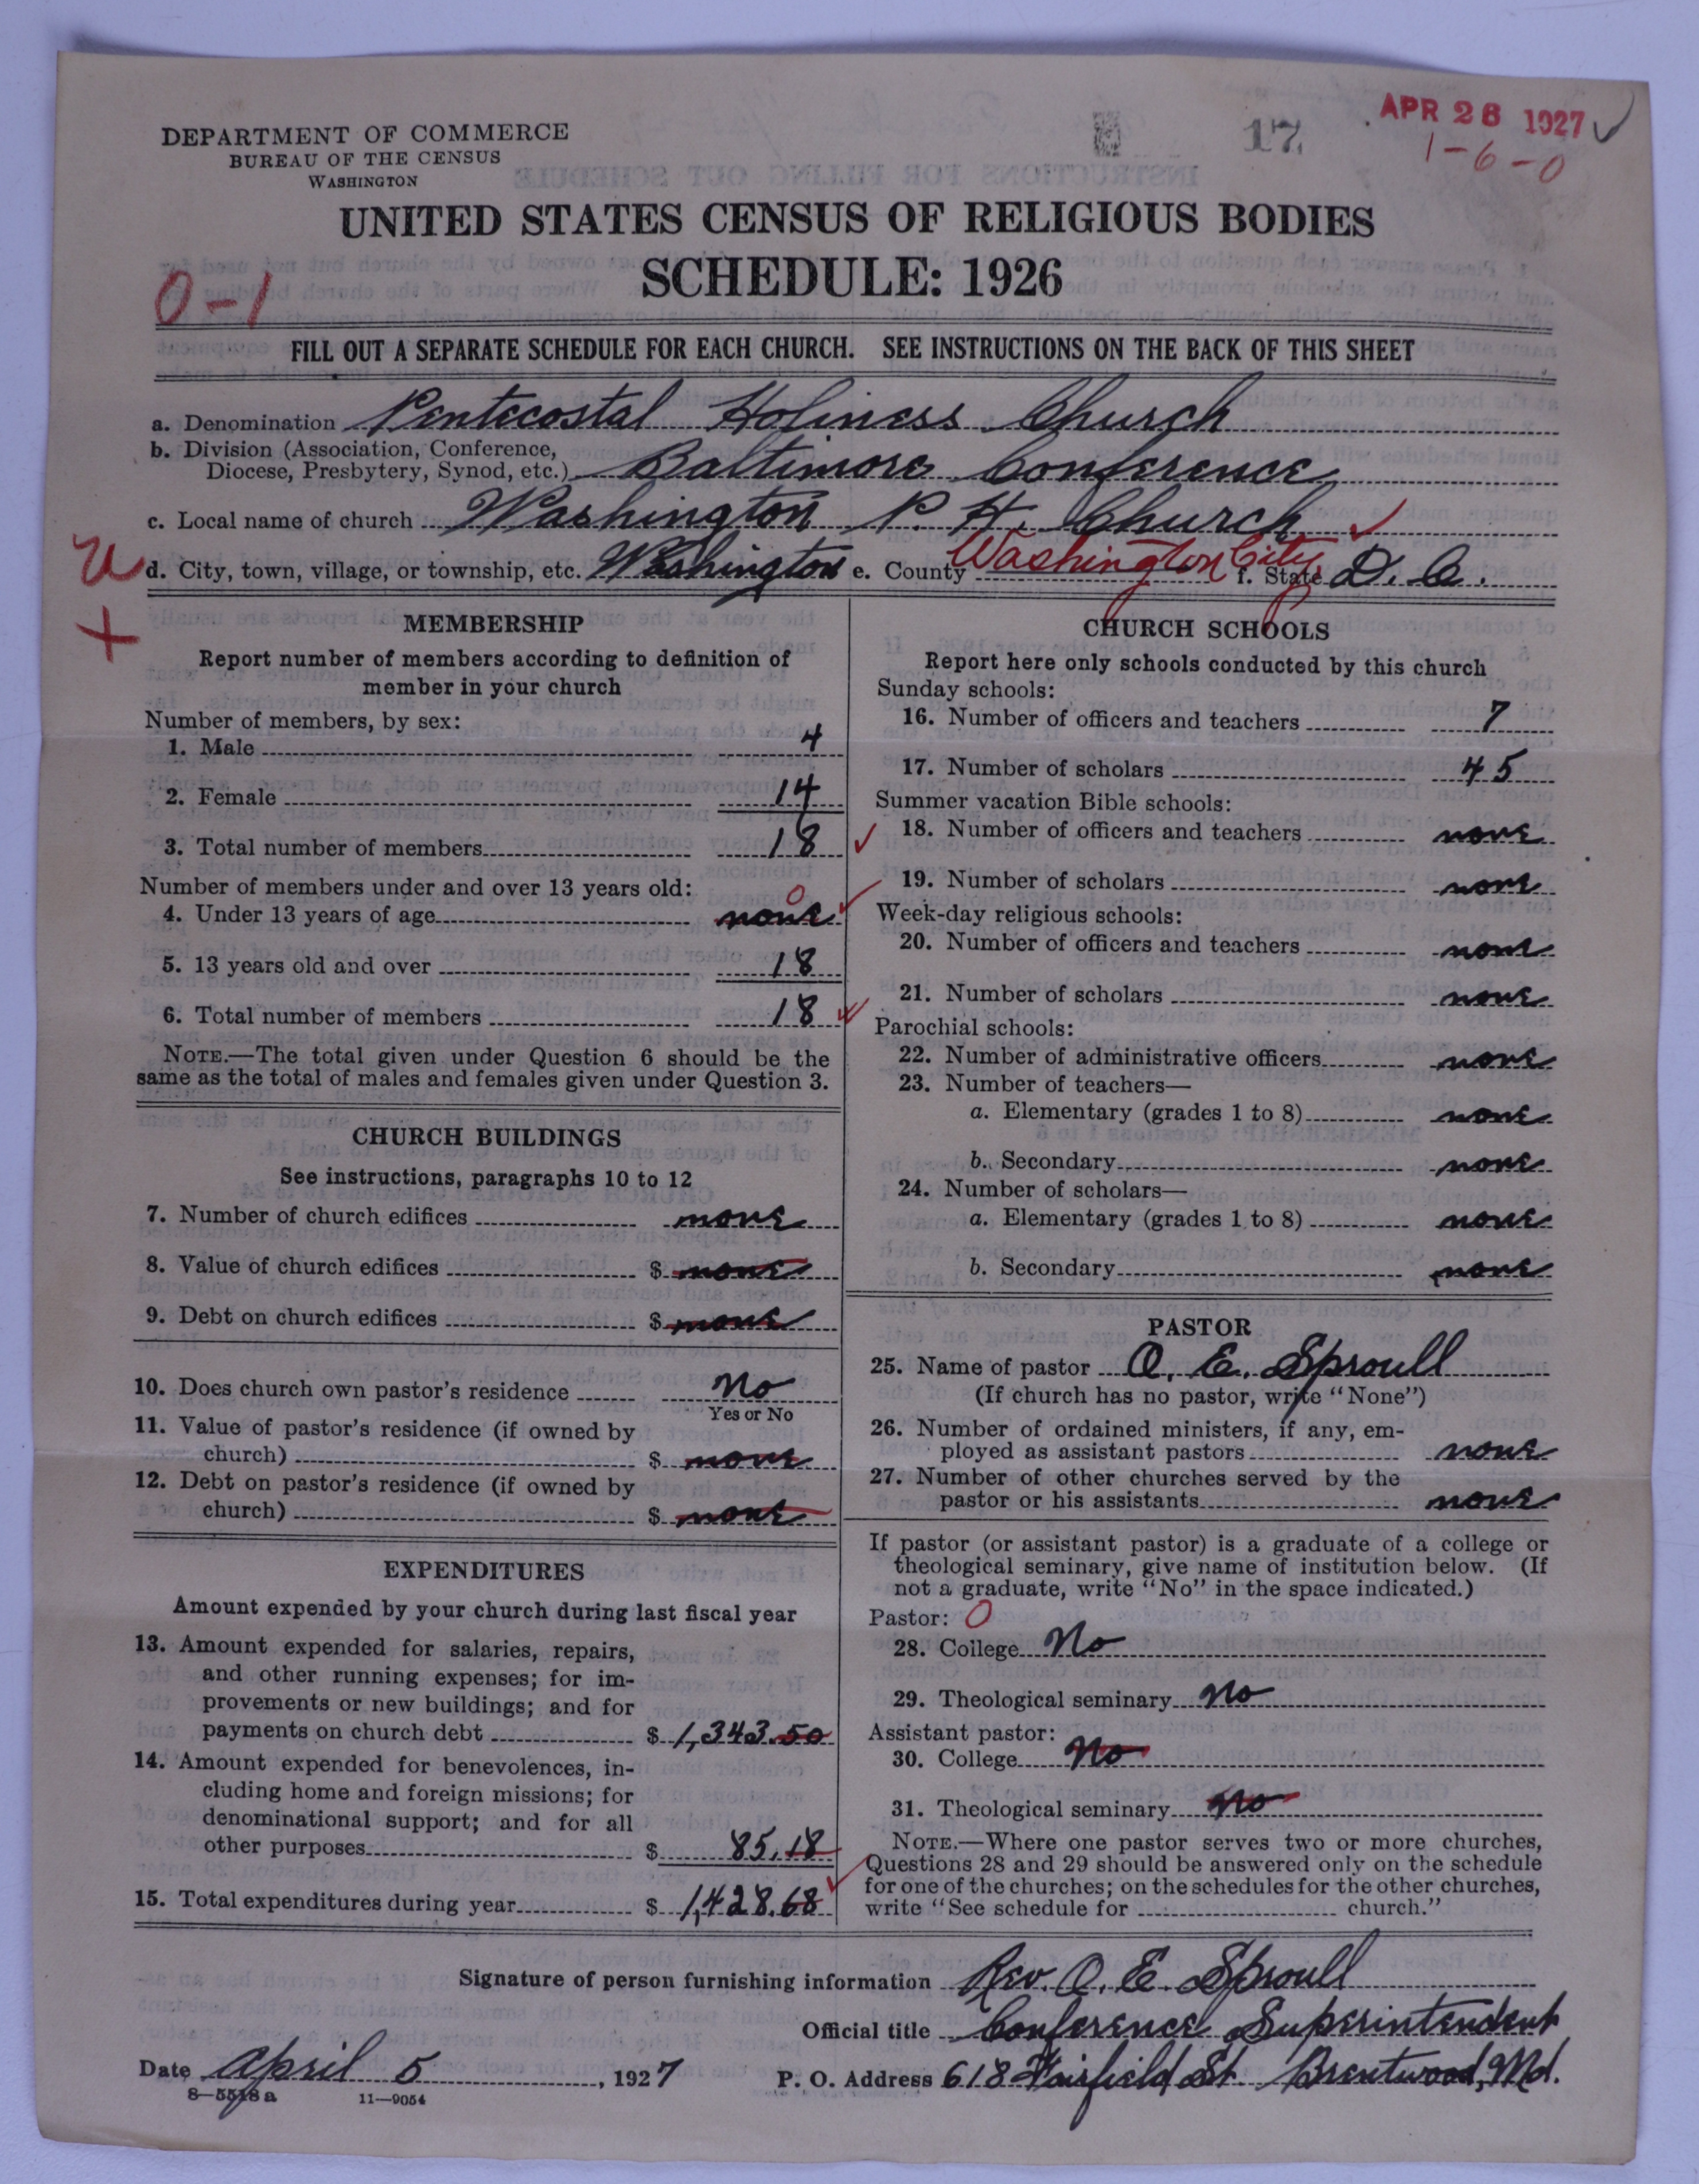 DEPARTMENT OF COMMERCE
BUREAU OF THE CENSUS
WASHINGTON
17
APR 26 1927
1-6-0
UNITED STATES CENSUS OF RELIGIOUS BODIES
SCHEDULE: 1926
0-1
FILL OUT A SEPARATE SCHEDULE FOR EACH CHURCH. SEE INSTRUCTIONS ON THE BACK OF THIS SHEET
a. Denomination Pentecostal Holiness Church
b. Division (Association, Conference,
Diocese, Presbytery, Synod, etc.) Baltimore Conference
c. Local name of church Washington P. H. Church
d. City, town, village, or township, etc. Washington e. County Washington City f. State D. C.
MEMBERSHIP
Report number of members according to definition of
member in your church
Number of members, by sex:
1. Male 4
2. Female 14
3. Total number of members 18
Number of members under and over 13 years old:
4. Under 13 years of age none 0
5. 13 years old and over 18
6. Total number of members 18
NOTE.—The total given under Question 6 should be the
same as the total of males and females given under Question 3.
CHURCH BUILDINGS
See instructions, paragraphs 10 to 12
7. Number of church edifices none
8. Value of church edifices $ none
9. Debt on church edifices $ none
10. Does church own pastor's residence No
Yes or No
11. Value of pastor's residence (if owned by
church) $ none
12. Debt on pastor's residence (if owned by
church) $ none
EXPENDITURES
Amount expended by your church during last fiscal year
13. Amount expended for salaries, repairs,
and other running expenses; for im-
provements or new buildings; and for
payments on church debt $ 1,343.50
14. Amount expended for benevolences, in-
cluding home and foreign missions; for
denominational support; and for all
other purposes $ 85.18
15. Total expenditures during year $ 1,428.68
CHURCH SCHOOLS
Report here only schools conducted by this church
Sunday schools:
16. Number of officers and teachers 7
17. Number of scholars 45
Summer vacation Bible schools:
18. Number of officers and teachers none
19. Number of scholars none
Week-day religious schools:
20. Number of officers and teachers none
21. Number of scholars none
Parochial schools:
22. Number of administrative officers none
23. Number of teachers—
a. Elementary (grades 1 to 8) none
b. Secondary none
24. Number of scholars—
a. Elementary (grades 1 to 8) none
b. Secondary none
PASTOR
25. Name of pastor O. E. Sproull
(If church has no pastor, write "None")
26. Number of ordained ministers, if any, em-
ployed as assistant pastors none
27. Number of other churches served by the
pastor or his assistants none
If pastor (or assistant pastor) is a graduate of a college or
theological seminary, give name of institution below. (If
not a graduate, write "No" in the space indicated.)
Pastor: 0
28. College No
29. Theological seminary No
Assistant pastor:
30. College No
31. Theological seminary No
NOTE.—Where one pastor serves two or more churches,
Questions 28 and 29 should be answered only on the schedule
for one of the churches; on the schedules for the other churches,
write "See schedule for church."
Signature of person furnishing information Rev. O. E. Sproull
Official title Conference Superintendent
Date April 5, 1927 P. O. Address 618 Fairfield St. Brentwood, Md.
8—5518a 11—9054